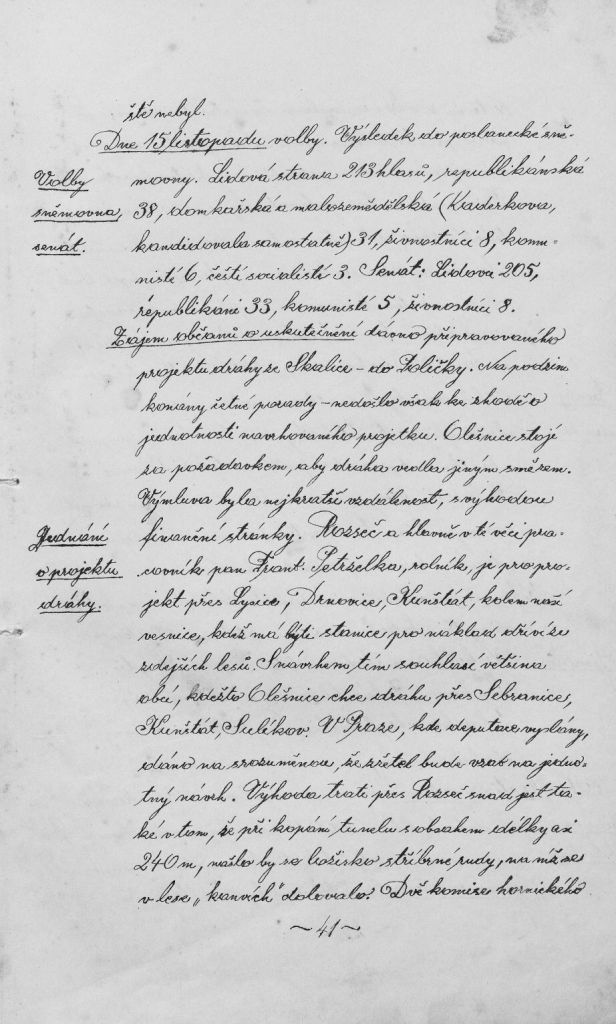 ště nebyl.
Dne 15 listopadu volby. Výsledek do poslanecké sně-
Volby
movny. Lidová strana 213 hlasů, republikánská
sněmovna,
38, domkařská a malozemědělská (Kaderkova,
senát.
kandidovala samostatně) 31, živnostníci 8, komu-
nisti 6, čeští socialisti 3. Senát: Lidovci 205,
republikáni 33, komunisté 5, živnostníci 8.
Zájem občanů o uskutečnění dávno připravovaného
projektu dráhy ze Skalice - do Poličky. Na podzim
konány četné porady - nedošlo však ke shodě o
jednotnosti navrhovaného projetku. Olešnice stojí
za požadavkem, aby dráha vedla jiným směrem.
Výmluva byla nejkratší vzdálenost, s výhodou
Jednání
finanční stránky. Rozseč a hlavně v té věci pra-
o projektu
covník pan Frant. Petrželka, rolník, je pro pro-
dráhy.
jekt přes Lysice, Drnovice, Kunštát, kolem naší
vesnice, kdež má býti stanice pro náklad dříví ze
zdejších lesů. S návrhem tím souhlasí většina
obcí, kdežto Olešnice chce dráhu přes Sebranice,
Kunštát, Sulíkov. V Praze, kde deputace vyslány,
dáno na srozuměnou, že zřetel bude vzat na jedno-
tný návrh. Výhoda trati přes Rozseč snad jest ta-
ké v tom, že při kopání tunelu s obsahem délky asi
240 m, našlo by se ložisko stříbrné rudy, na níž se
v lese „ dolovalo. Dvě komise hornického
~ 41 ~